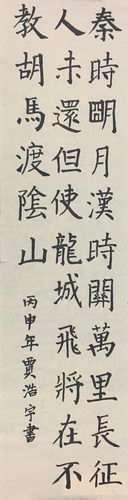 秦時明月漢時關萬里長征
人未還但使龍城飛將在不
教胡馬渡陰山
丙申年賈浩宇書